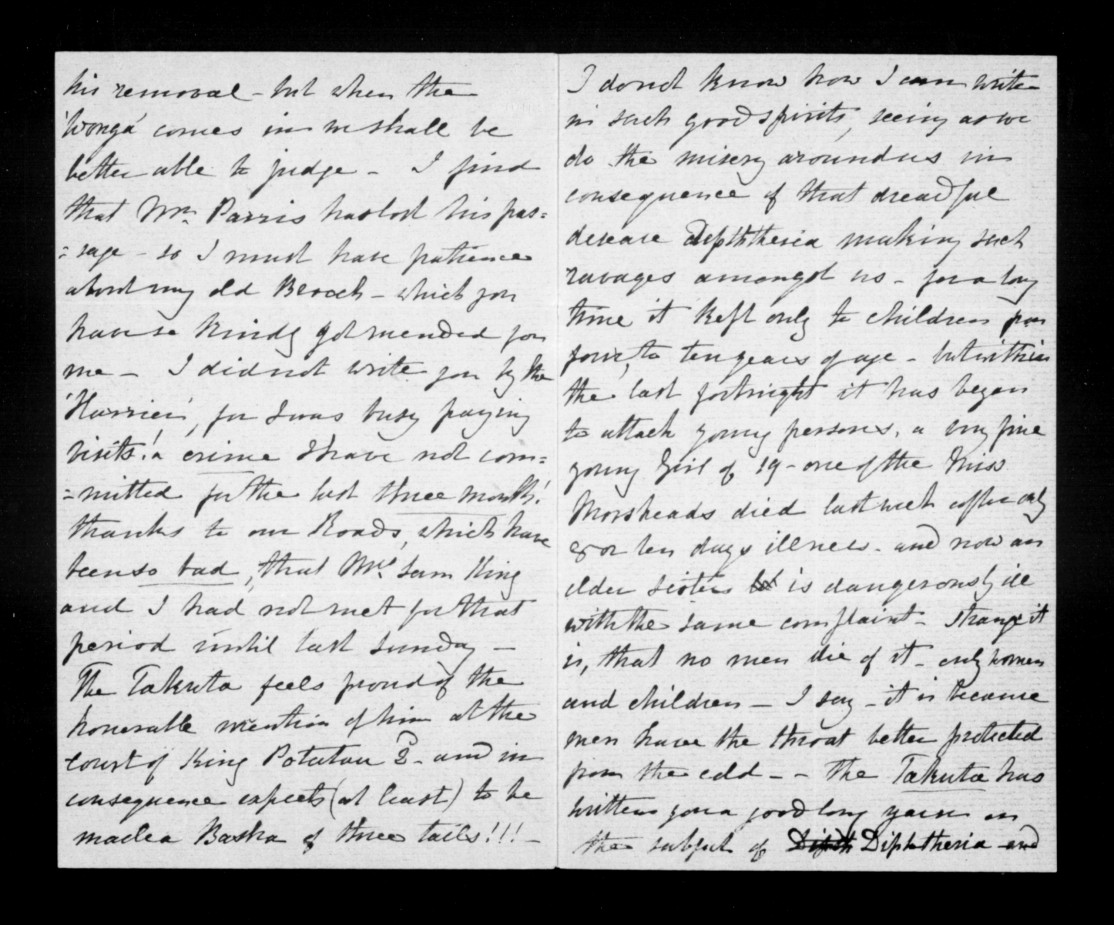 his removal - but when the
'Wonga' comes in we shall be
better able to judge - I find
that Mr. Parris has lost his pas=
=sage - so I must have patience
about my old Brooch - which you
have so kindly got mended for
me - I did not write you by the
'Harrier', for I was busy paying
visits! a crime I have not com=
=mitted for the last three months!
thanks to our Roads, which have
been so bad, that Mrs. Sam King
and I had not met for that
period until last Sunday -
The Takuta feels proud of the
honorable mention of him at the
court of King Potatau 2d - and in
consequence expects (at least) to be
made a Basha of three tails!!! -
I do not know how I can write
in such good spirits, seeing as we
do the misery around us in
consequence of that dreadful
disease diphtheria making such
ravages amongst us - for a long
time it kept only to children from
four, to ten years of age - but within
the last fortnight it has began
to attack young persons, a very fine
young Girl of 19 - one of the Miss
Morsheads died last week after only
8 or ten days illness - and now an
elder sister is dangerously ill
with the same complaint - strange it
is, that no men die of it - only women
and children - I say - it is because
men have the throat better protected
from the cold - - the Takuta has
written you a good long yarn on
the subject of Diphtheria and